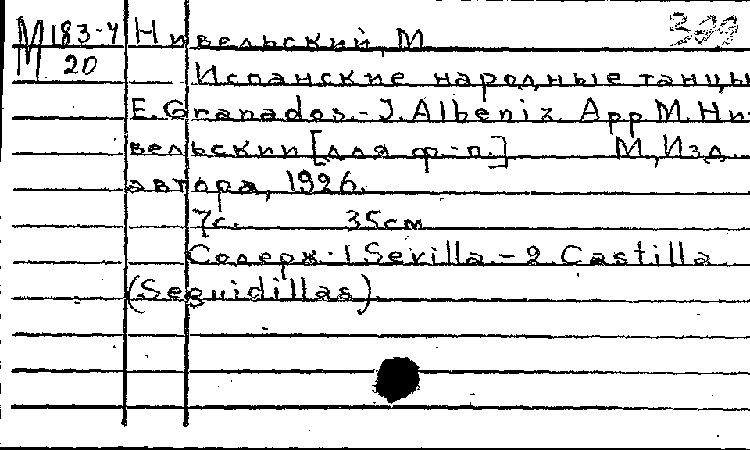 М 183-4 Нивельский, М.
20
Испанские народные танцы
E. Granados.-J. Albeniz. Арр М. Ни-
вельский [для ф.-п.] М, Изд
автора, 1926.
7с. 35см
Содерж. 1 Sevilla.-2 Castilla
(Seguidillas)